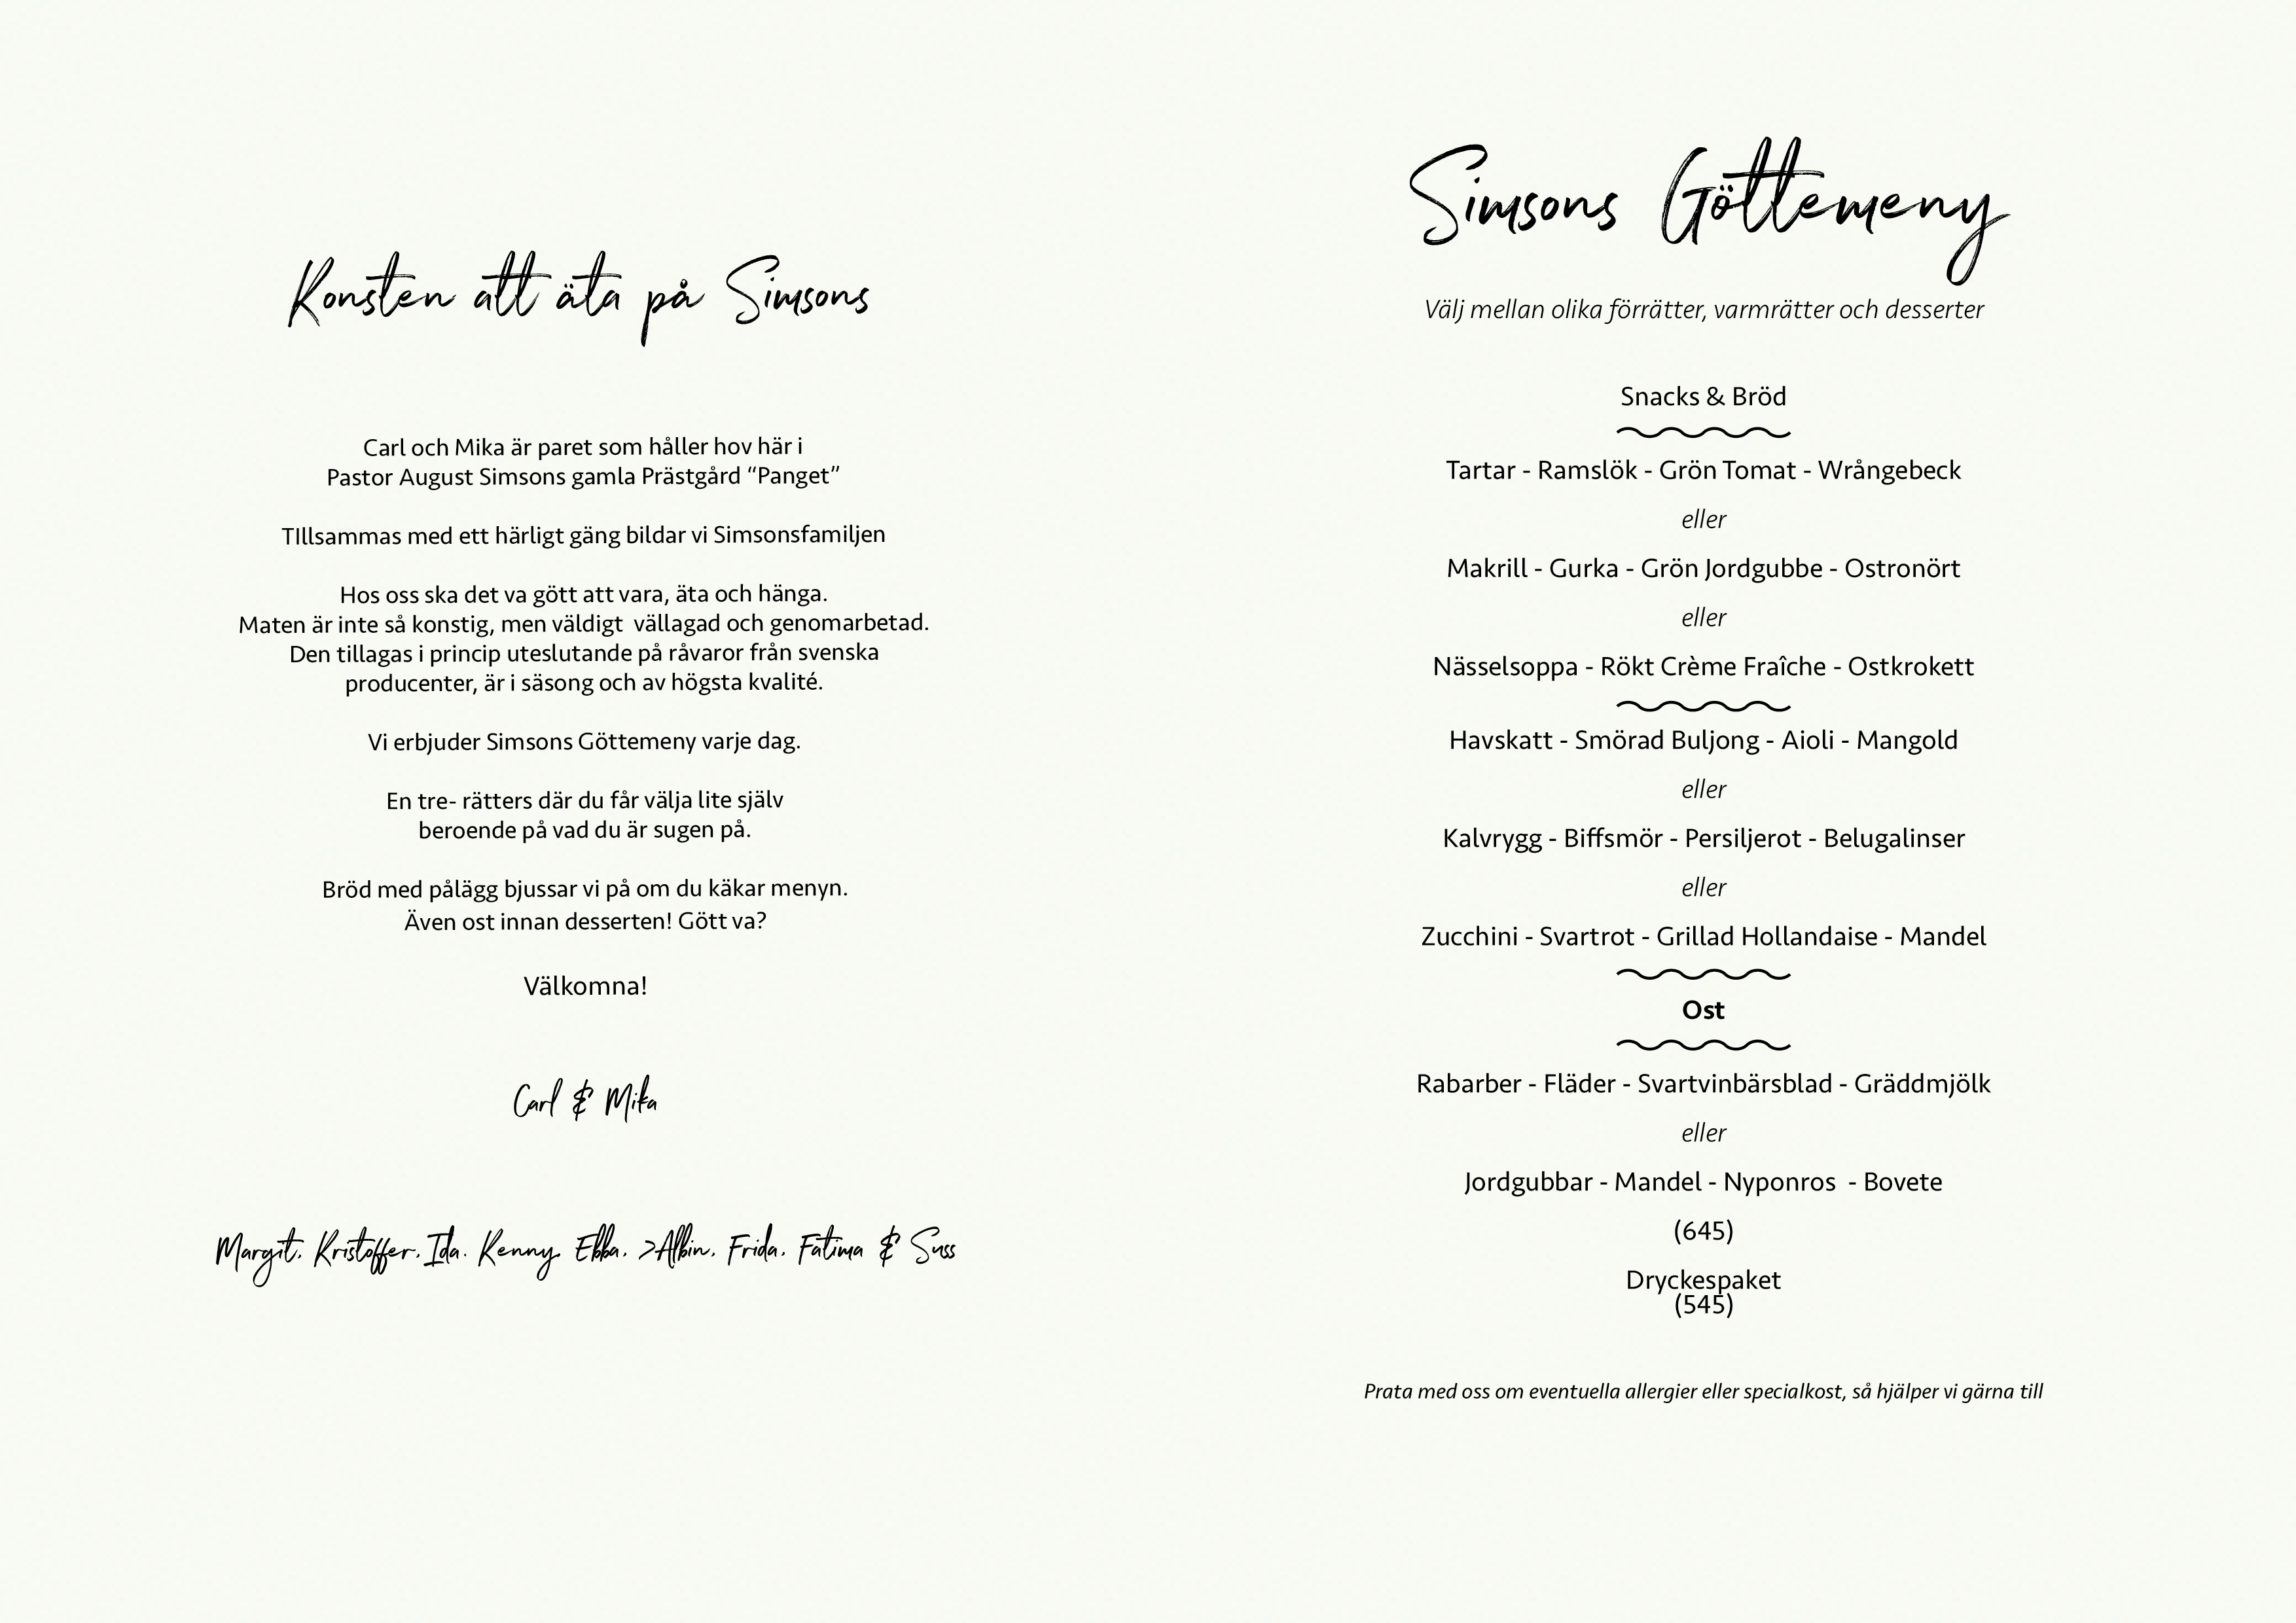 Konsten att äta på Simsons
Carl och Mika är paret som håller hov här i
Pastor August Simsons gamla Prästgård “Panget”
TIllsammas med ett härligt gäng bildar vi Simsonsfamiljen
Hos oss ska det va gött att vara, äta och hänga.
Maten är inte så konstig, men väldigt  vällagad och genomarbetad.
Den tillagas i princip uteslutande på råvaror från svenska
producenter, är i säsong och av högsta kvalité.
Vi erbjuder Simsons Göttemeny varje dag.
En tre- rätters där du får välja lite själv
beroende på vad du är sugen på.
Bröd med pålägg bjussar vi på om du käkar menyn.
Även ost innan desserten! Gött va?
Välkomna!
Carl & Mika
Margit, Kristoffer, Ida, Kenny, Ebba, >Albin, Frida, Fatima & Suss
Simsons Göttemeny
Välj mellan olika förrätter, varmrätter och desserter
Snacks & Bröd
Tartar - Ramslök - Grön Tomat - Wrångebeck
eller
Makrill - Gurka - Grön Jordgubbe - Ostronört
eller
Nässelsoppa - Rökt Crème Fraîche - Ostkrokett
Havskatt - Smörad Buljong - Aioli - Mangold
eller
Kalvrygg - Biffsmör - Persiljerot - Belugalinser
eller
Zucchini - Svartrot - Grillad Hollandaise - Mandel
Ost
Rabarber - Fläder - Svartvinbärsblad - Gräddmjölk
eller
Jordgubbar - Mandel - Nyponros  - Bovete
(645)
Dryckespaket
(545)
Prata med oss om eventuella allergier eller specialkost, så hjälper vi gärna till